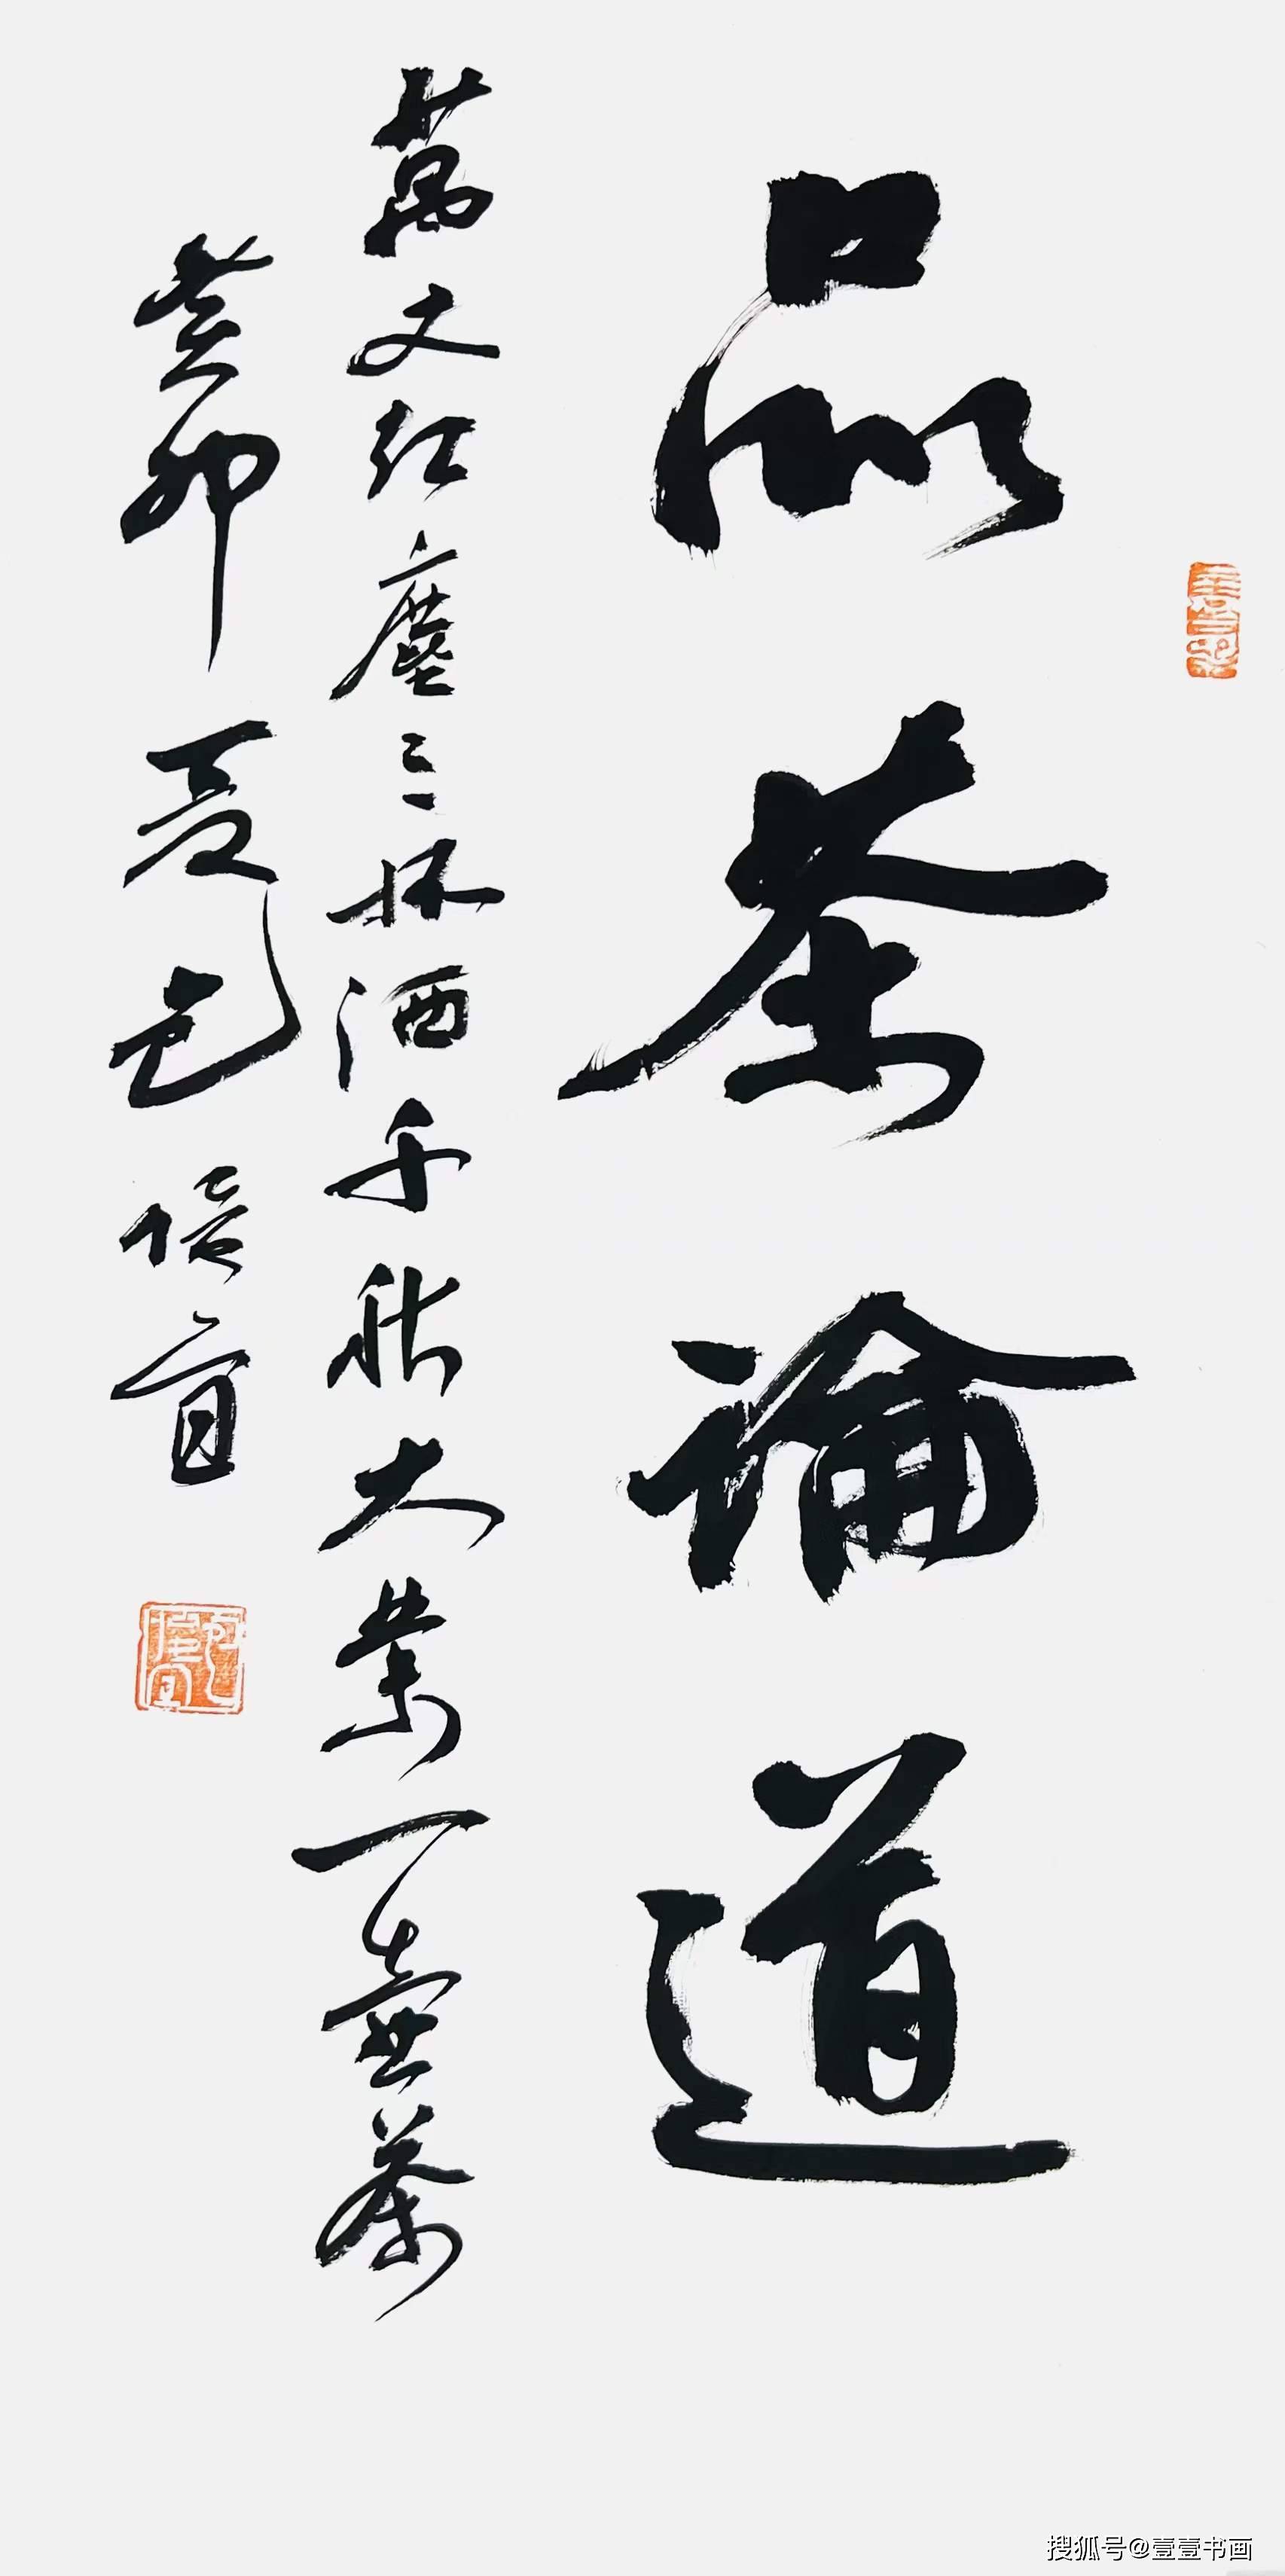 品茶論道
萬丈紅塵三杯酒千秋大業一壺茶
癸卯夏色培首
搜狐号@壹壹书画